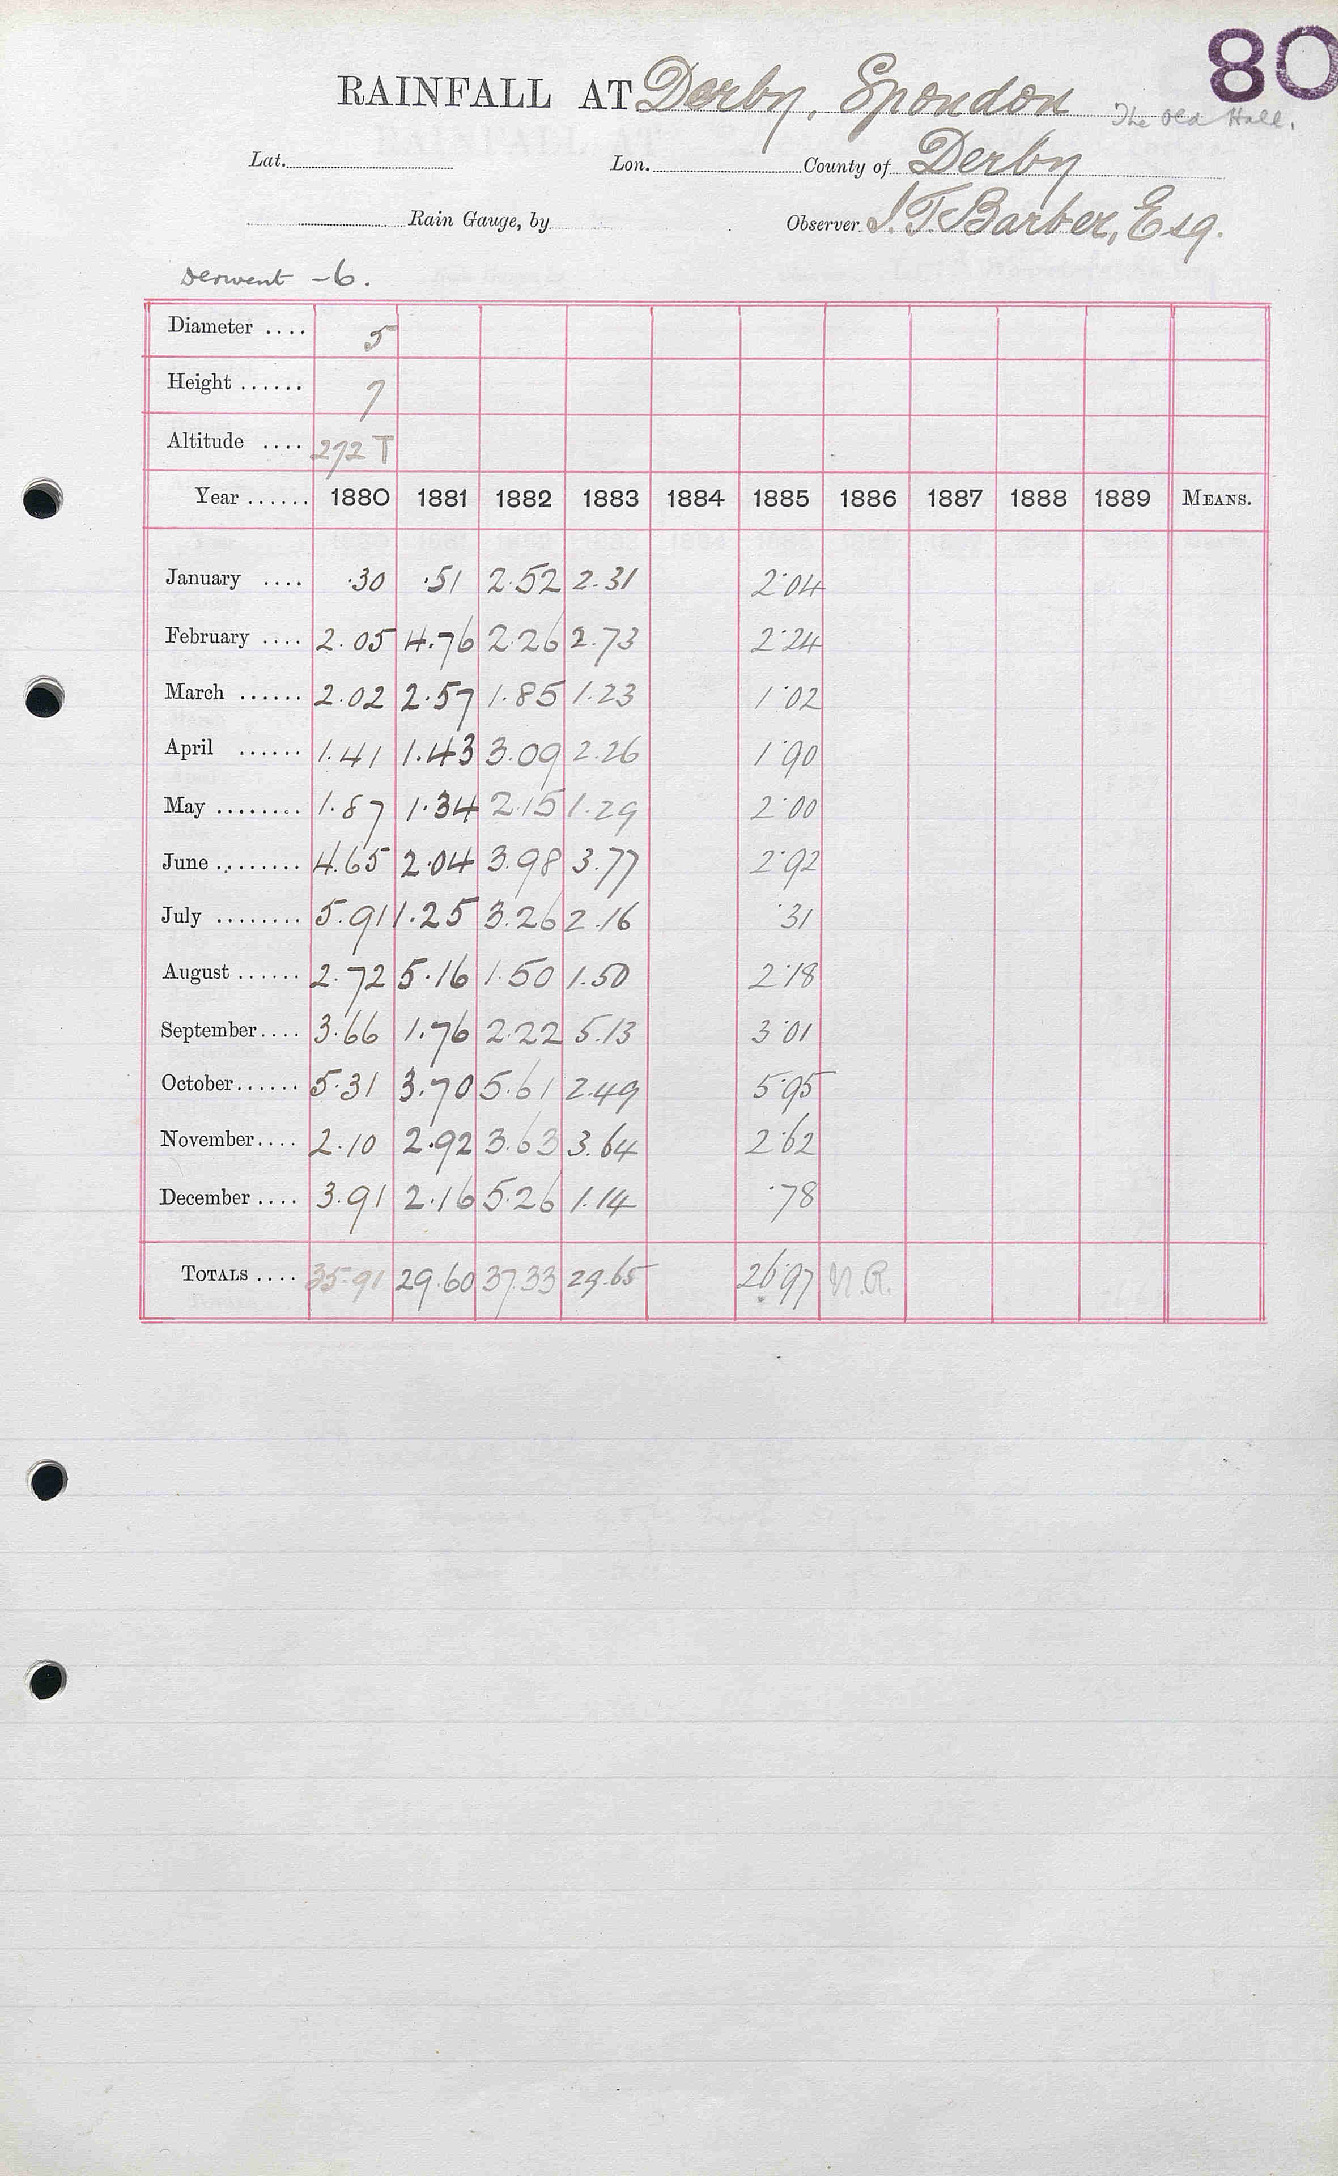 80
RAINFALL AT Derby, Spondon The Old Hall.
Lat. Lon. County of Derby
Rain Gauge, by Observer J. T. Barber, Esq.
Derwent -6.
Diameter .... 5
Height ...... 7
Altitude .... 272 T
Year ...... 1880 1881 1882 1883 1884 1885 1886 1887 1888 1889 MEANS.
January .... .30 .51 2.52 2.31 2.04
February .... 2.05 4.76 2.26 2.73 2.24
March ...... 2.02 2.57 1.85 1.23 1.02
April ...... 1.41 1.43 3.09 2.26 1.90
May ........ 1.87 1.34 2.15 1.29 2.00
June ........ 4.65 2.04 3.98 3.77 2.92
July ........ 5.91 1.25 3.26 2.16 .31
August ...... 2.72 5.16 1.50 1.50 2.18
September .... 3.66 1.76 2.22 5.13 3.01
October ...... 5.31 3.70 5.61 2.49 5.95
November .... 2.10 2.92 3.63 3.64 2.62
December .... 3.91 2.16 5.26 1.14 .78
TOTALS .... 35.91 29.60 37.33 29.65 26.97 N.R.